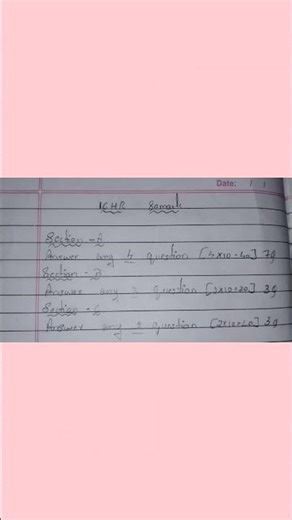 Date: / /
ICHR
Section - A
Answer any 4 question [4x10=40] 7Q
Section - B
Answer any 2 question [2x10=20] 3Q
Section - C
Answer any 2 question [2x10=20] 3Q